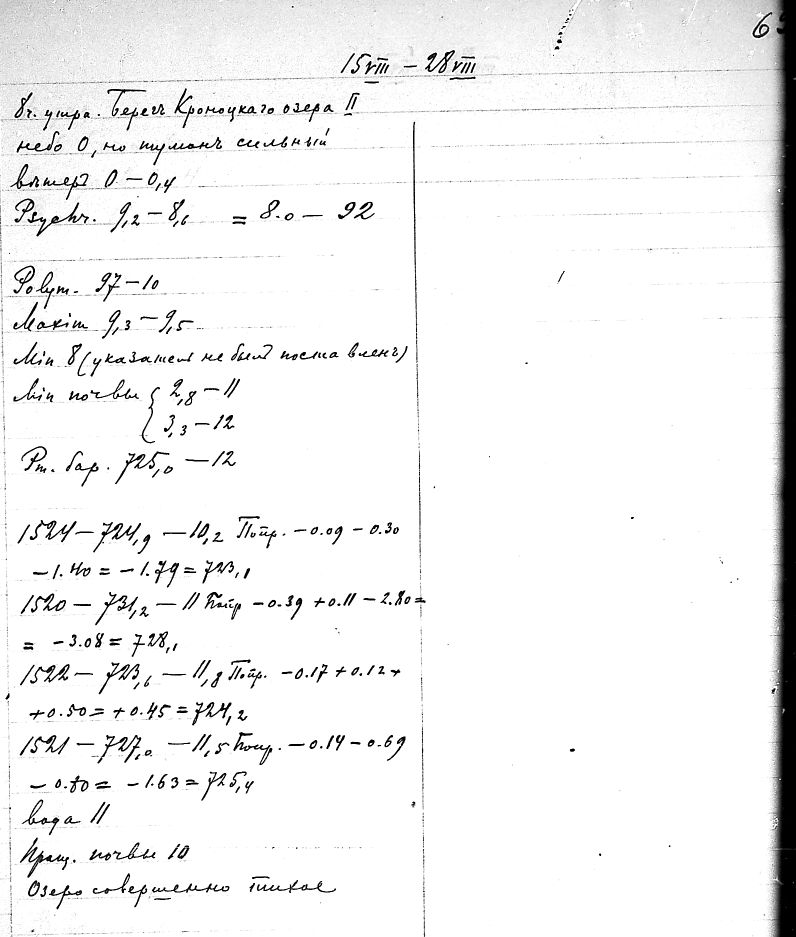 15 VIII – 28 VIII
8 ч. утра. Берегъ Кроноцкаго озера II
небо 0, но туманъ сильный
вѣтеръ 0 – 0,4
Psychr. 9,2 – 8,6 = 8.0 – 92
Polym. 97 – 10
Maxim 9,3 – 9,5
Min 8 (указатель не былъ поставленъ)
Min почвы { 2,8 – 11
3,3 – 12
Рт. бар. 725,0 – 12
1524 – 724,9 – 10,2 Попр. – 0.09 – 0.30
– 1.40 = – 1.79 = 723,1
1520 – 731,2 – 11 Попр – 0.39 + 0.11 – 2.80 =
= – 3.08 = 728,1
1522 – 723,6 – 11,8 Попр. – 0.17 + 0.12 +
+ 0.50 = + 0.45 = 724,2
1521 – 727,0 – 11,5 Попр. – 0.14 – 0.69
– 0.80 = – 1.63 = 725,4
вода 11
Пращ. почвы 10
Озеро совершенно тихое